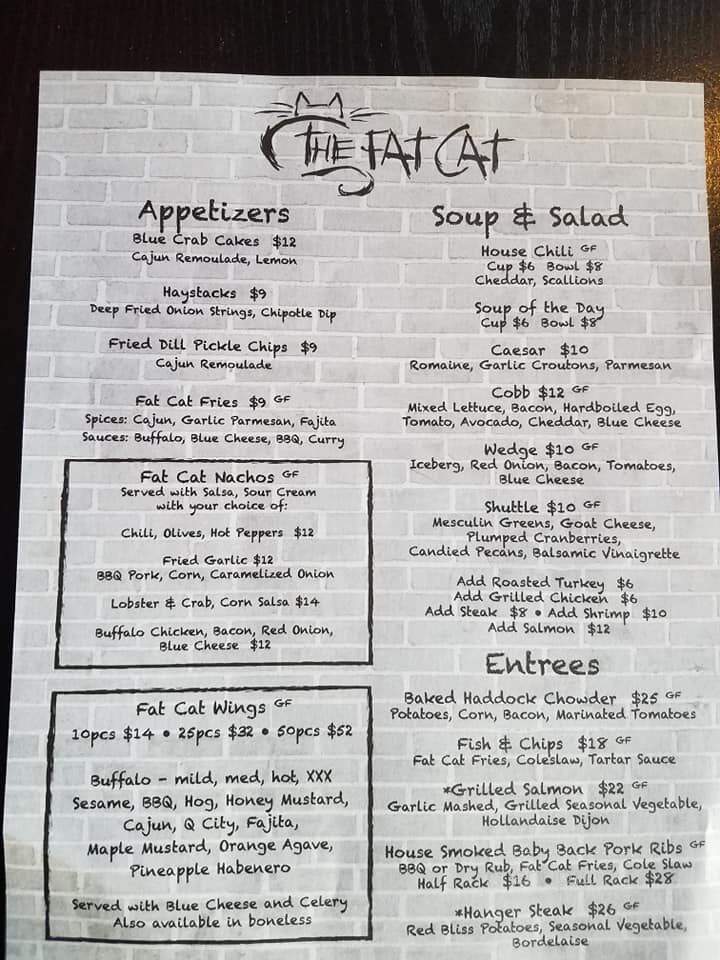 THE FAT CAT
Appetizers
Blue Crab Cakes $12
Cajun Remoulade, Lemon
Haystacks $9
Deep Fried Onion Strings, Chipotle Dip
Fried Dill Pickle Chips $9
Cajun Remoulade
Fat Cat Fries $9 GF
Spices: Cajun, Garlic Parmesan, Fajita
Sauces: Buffalo, Blue Cheese, BBQ, Curry
Fat Cat Nachos GF
Served with Salsa, Sour Cream
with your choice of:
Chili, Olives, Hot Peppers $12
Fried Garlic $12
BBQ Pork, Corn, Caramelized Onion
Lobster & Crab, Corn Salsa $14
Buffalo Chicken, Bacon, Red Onion,
Blue Cheese $12
Fat Cat Wings GF
10pcs $14 • 25pcs $32 • 50pcs $52
Buffalo - mild, med, hot, XXX
Sesame, BBQ, Hog, Honey Mustard,
Cajun, Q City, Fajita,
Maple Mustard, Orange Agave,
Pineapple Habenero
Served with Blue Cheese and Celery
Also available in boneless
Soup & Salad
House Chili GF
Cup $6 Bowl $8
Cheddar, Scallions
Soup of the Day
Cup $6 Bowl $8
Caesar $10
Romaine, Garlic Croutons, Parmesan
Cobb $12 GF
Mixed Lettuce, Bacon, Hardboiled Egg,
Tomato, Avocado, Cheddar, Blue Cheese
Wedge $10 GF
Iceberg, Red Onion, Bacon, Tomatoes,
Blue Cheese
Shuttle $10 GF
Mesculin Greens, Goat Cheese,
Plumped Cranberries,
Candied Pecans, Balsamic Vinaigrette
Add Roasted Turkey $6
Add Grilled Chicken $6
Add Steak $8 • Add Shrimp $10
Add Salmon $12
Entrees
Baked Haddock Chowder $25 GF
Potatoes, Corn, Bacon, Marinated Tomatoes
Fish & Chips $18 GF
Fat Cat Fries, Coleslaw, Tartar Sauce
*Grilled Salmon $22 GF
Garlic Mashed, Grilled Seasonal Vegetable,
Hollandaise Dijon
House Smoked Baby Back Pork Ribs GF
BBQ or Dry Rub, Fat Cat Fries, Cole Slaw
Half Rack $16 • Full Rack $28
*Hanger Steak $26 GF
Red Bliss Potatoes, Seasonal Vegetable,
Bordelaise